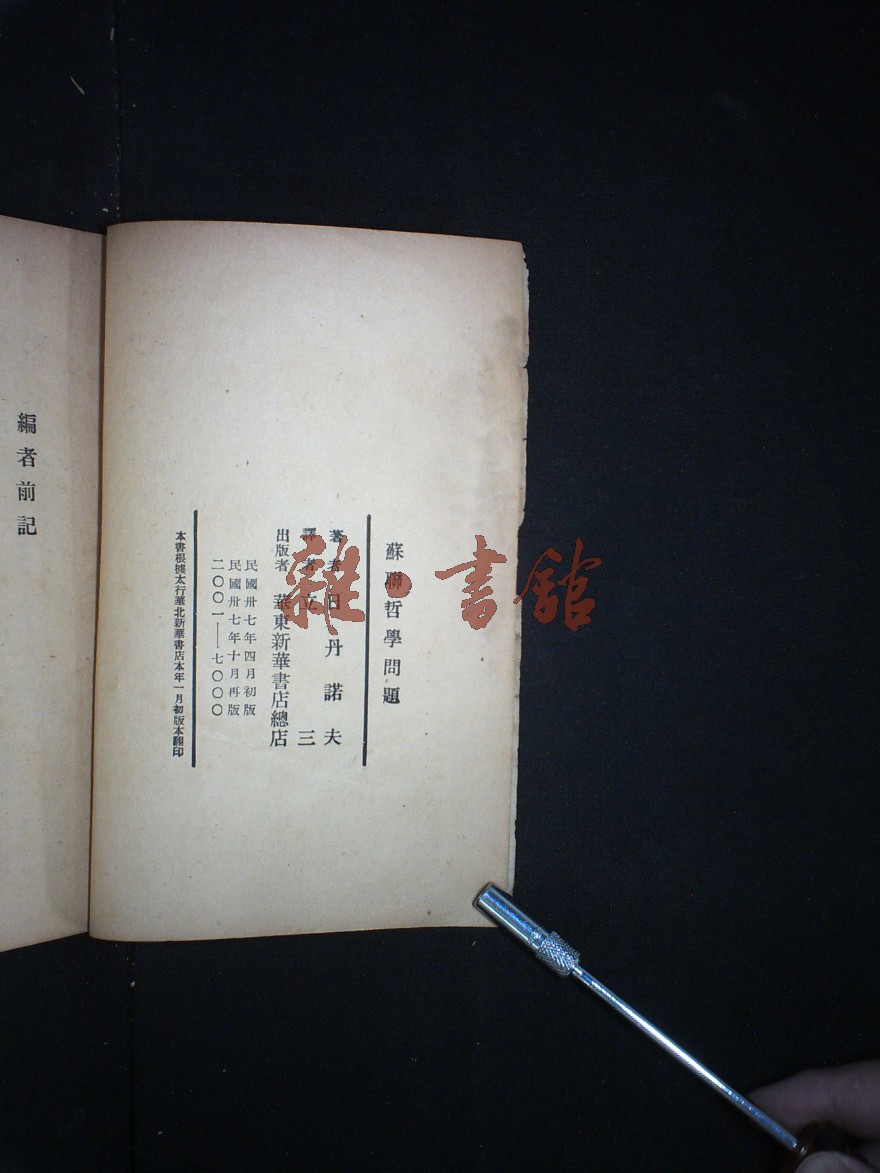 蘇聯哲學問題
著者日丹諾夫
譯者立三
出版者 華東新華書店總店
民國卅七年四月初版
民國卅七年十月再版
二〇〇一——七〇〇〇
本書根據太行華北新華書店本年一月初版本翻印
編者前記
雜·書館